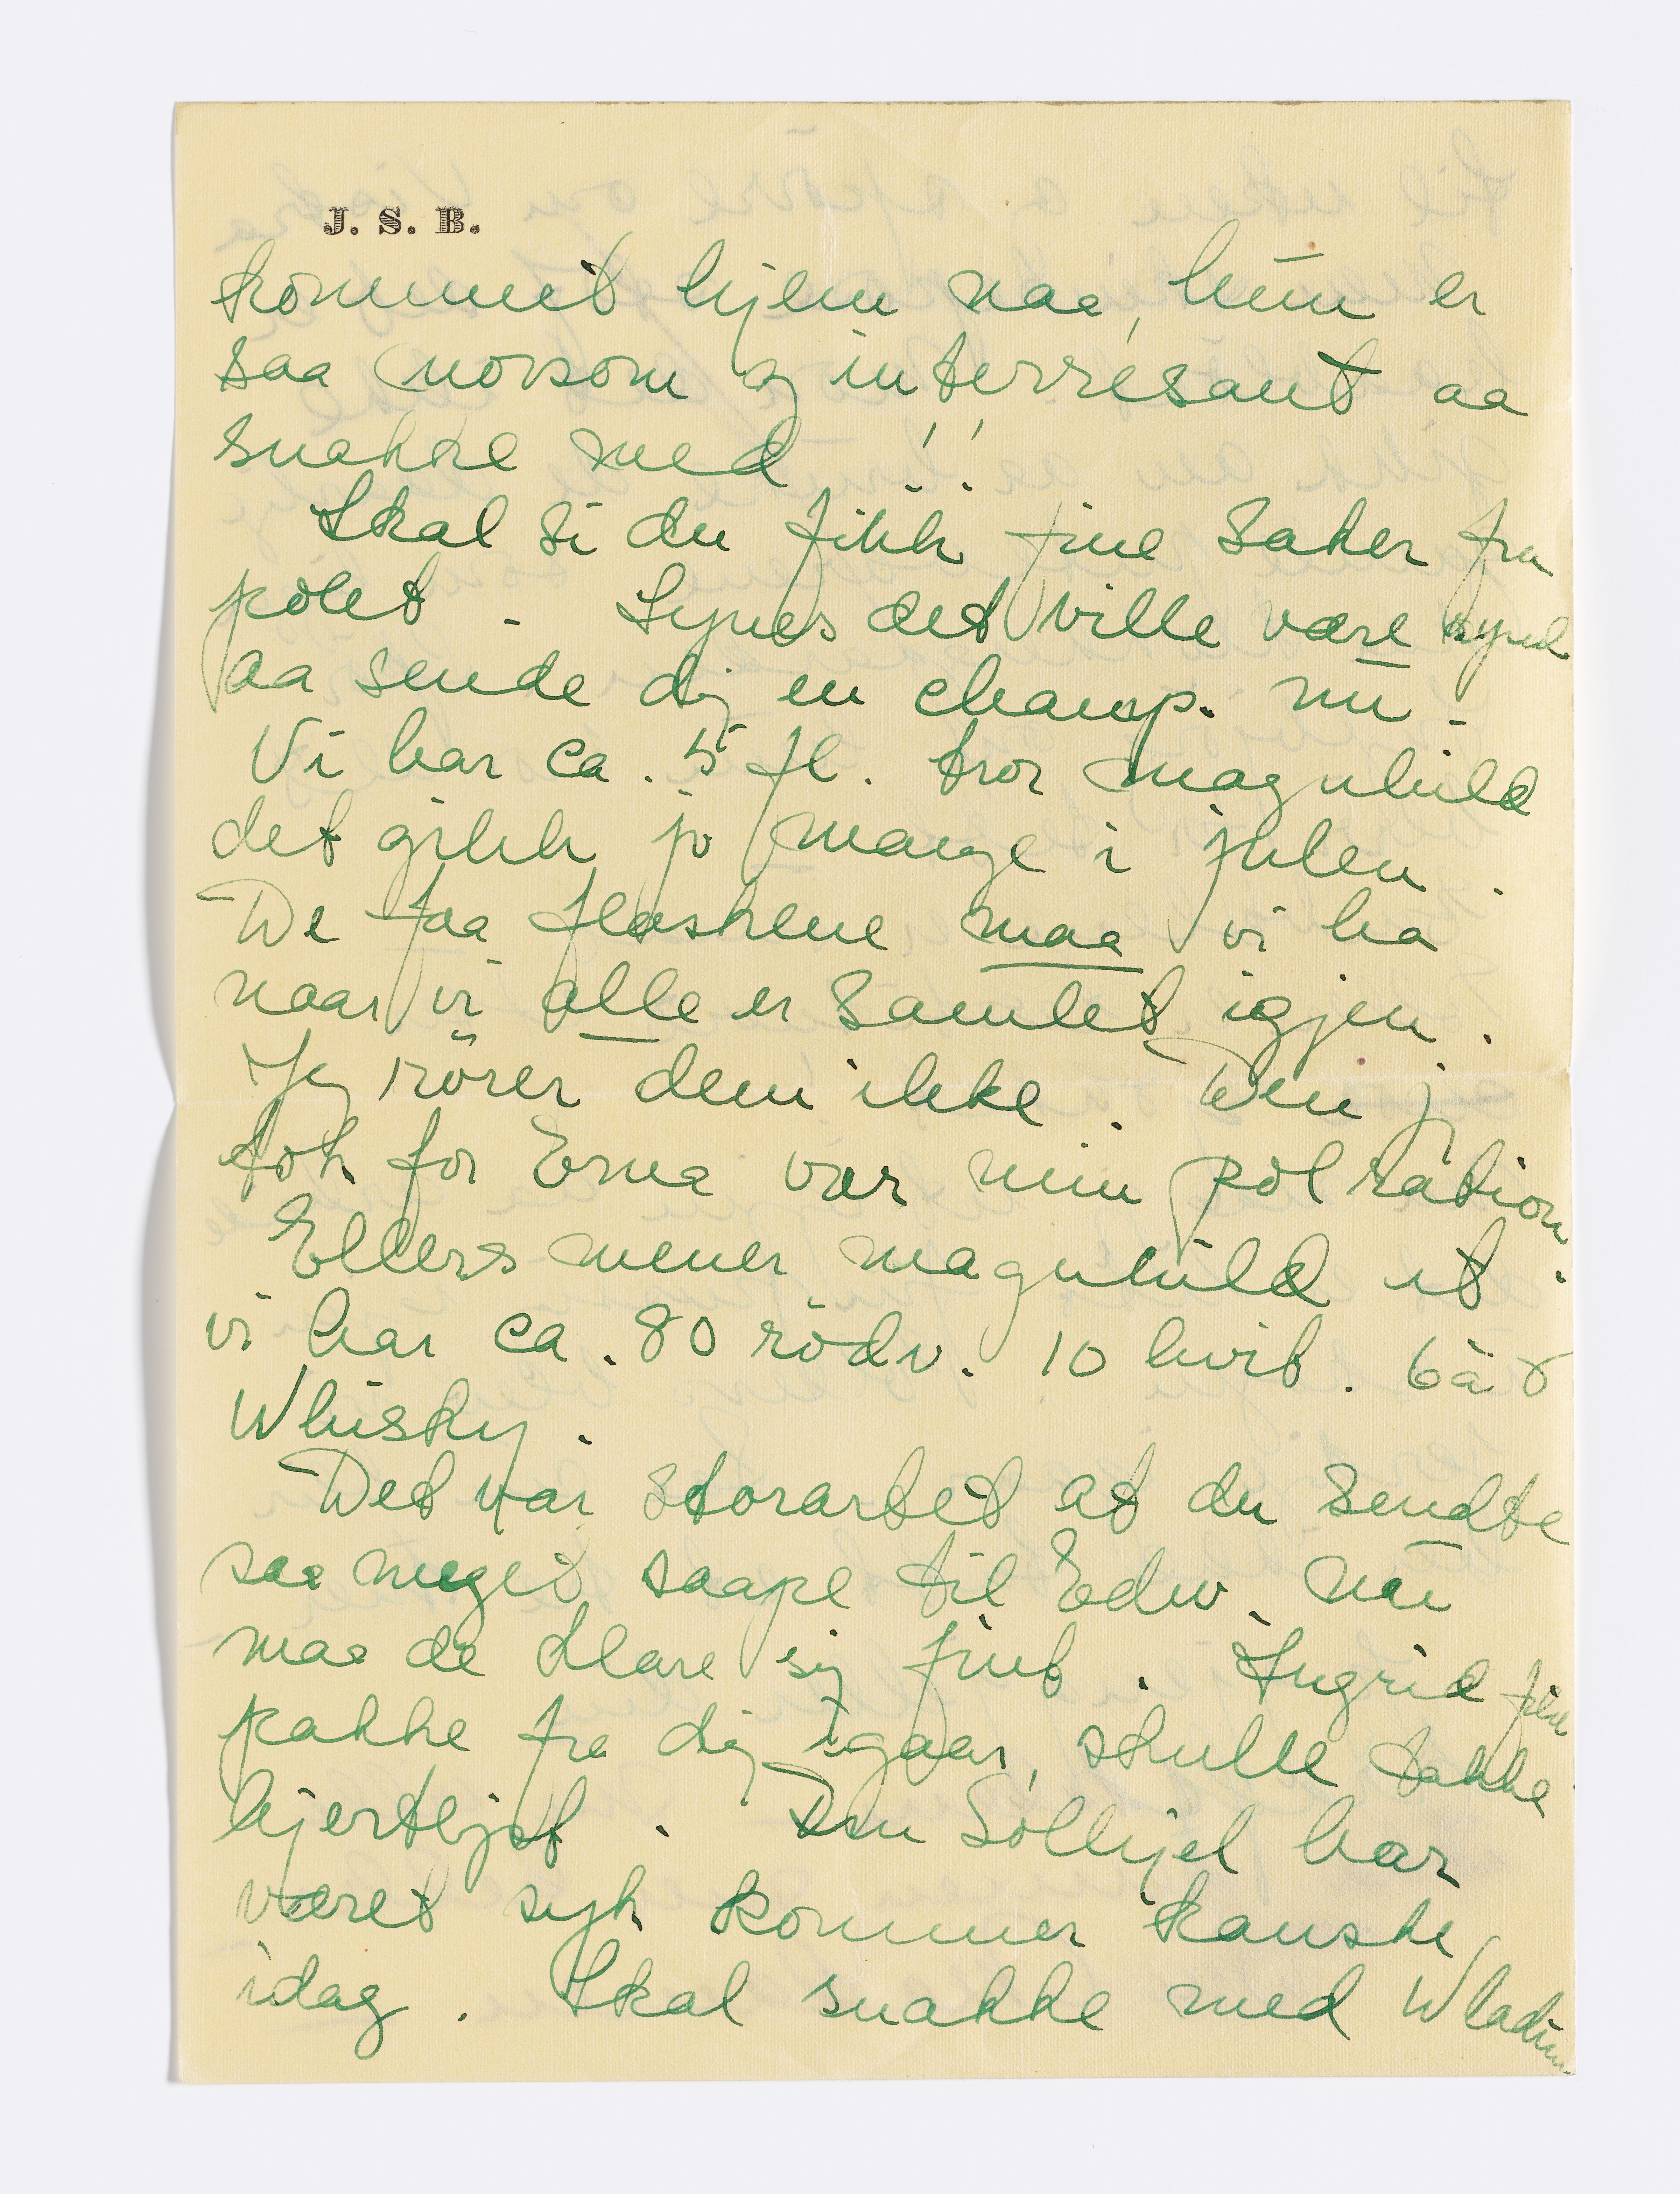 J. S. B.
kommet hjem naa, hun er
saa morsom og interresant aa
snakke med !!
Skal si du fikk fine saker fra
polet. Synes det ville være synd
aa sende dig en champ. nu.
Vi har ca. 5 fl. tror Magnhild
det gikk jo mange i julen.
De faa flaskene maa vi ha
naar vi alle er samlet igjen.
Jeg rörer dem ikke. Den j
tok for Erna var min pol ration.
Ellers mener Magnhild at
vi har ca. 80 rödv. 10 hvit. 6 à 8
Whisky.
Det var storartet at du sendte
saa meget saape til Edw. nu
maa de klare sig fint. Ingrid fikk
pakke fra dig igaar, skulle takke
hjerteligst. Solhjel har
været syk kommer kanske
idag. Skal snakke med Wladim